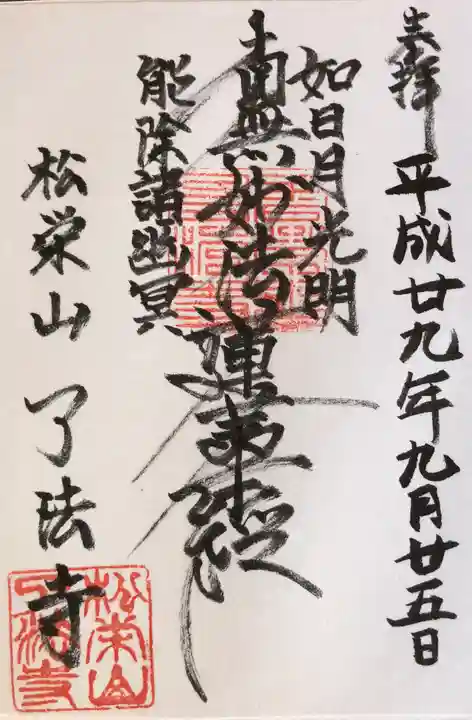 奉拝 平成廿九年九月廿五日
如日月光明
南無妙法蓮華経
能除諸幽冥
松栄山 了法寺
松栄山了法寺